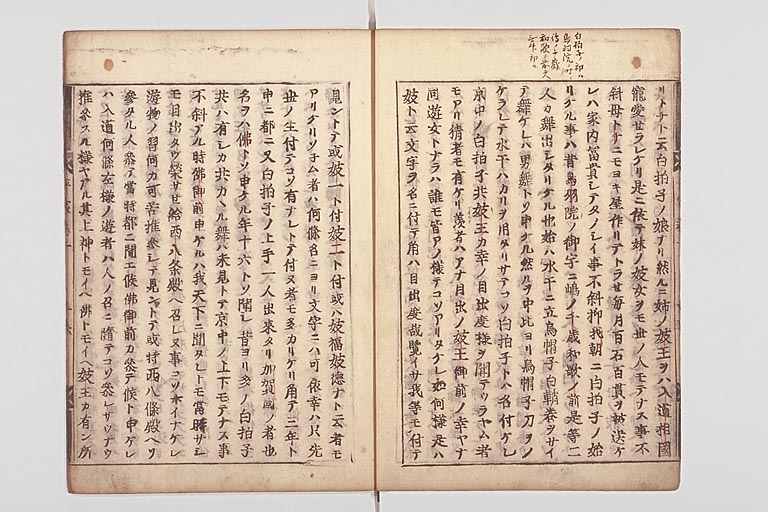 白拍子ノ初ハ
鳥羽院ノ時
リトチト云白拍子ノ娘ナリ然ルニ姉ノ妓王ヲハ入道相國
寵愛セラレケリ是ニ依テ妹ノ妓女ヲモ世ノ人モテナス事不
斜母トチニモヨキ屋作リテトラセ毎月百石百貫ヲ被送ケ
レハ家内冨貴シテタノシイ事不斜抑我朝ニ白拍子ノ始
リケル事ハ昔鳥羽院ノ御宇ニ嶋ノ千歳和歌ノ前是等二
人カ舞出シタリケル也始ハ水干ニ立烏帽子白鞘巻ヲサイ
テ舞ケレハ男舞トソ申ケル然ルヲ中比ヨリ烏帽子刀ヲノ
ケラレテ水干ハカリヲ用タリサテコソ白拍子トハ名付ケレ
京中ノ白拍子共妓王カ幸ノ目出度様ヲ聞テウラヤム者
モアリ猜者モ有ケリ羨者ハアナ目出ノ妓王御前ノ幸ヤナ
同遊女トナラハ誰モ皆アノ様テコソアリタケレ如何様是ハ
妓ト云文字ヲ名ニ付テ角ハ目出度哉覧イサ我等モ付テ
見ントテ或妓一ト付妓二ト付或ハ妓福妓徳ナト云者モ
アリケリソ子ム者ハ何條名ニヨリ文字ニハ可依幸ハ只先
世ノ生付テコソ有ナレトテ付ヌ者モ多カリケリ角テ三年ト
申ニ都ニ又白拍子ノ上手一人出来タリ加賀國ノ者也
名ヲハ佛トソ申ケル年十六トソ聞レ昔ヨリ多ノ白拍子
共ハ有シカ共カヽル舞ハ未見トテ京中ノ上下モテナス事
不斜アル時佛御前申ケルハ我天下ニ聞タレトモ當時サシ
モ目出タウ栄サセ給西八条殿ヘ召レヌ事コソ本イナケレ
遊物ノ習何カ可苦推参シテ見ントテ或時西八條殿ヘソ
参タル人参テ當時都ニ聞エ候佛御前カ参テ候ト申ケレ
ハ入道何條左様ノ遊者ハ人ノ召ニ隨テコソ参レサウナウ
推参スル様ヤアル其上神トモイヘ佛トモイヘ妓王カ有ン所